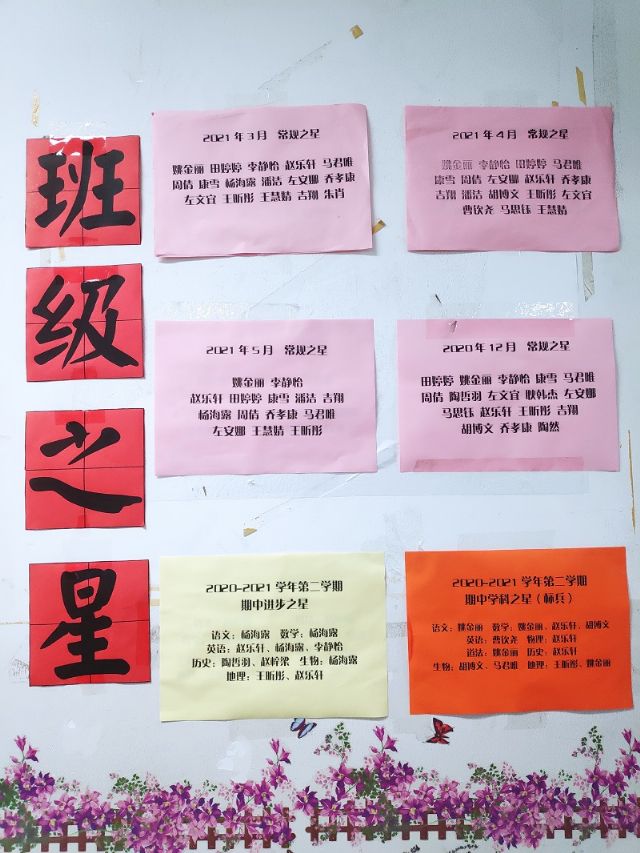 班级之星
2021年3月 常规之星
姚金丽 田婷婷 李静怡 赵乐轩 马君唯
周倩 康雪 杨海露 潘洁 左安娜 乔孝康
左文宜 王昕彤 王慧婧 吉翔 朱肖
2021年4月 常规之星
姚金丽 李静怡 田婷婷 马君唯
康雪 周倩 左安娜 赵乐轩 乔孝康
吉翔 潘洁 胡博文 王昕彤 左文宜
曹钦尧 马思钰 王慧婧
2021年5月 常规之星
姚金丽 李静怡
赵乐轩 田婷婷 康雪 潘洁 吉翔
杨海露 周倩 乔孝康 马君唯
左安娜 王慧婧 王昕彤
2020年12月 常规之星
田婷婷 姚金丽 李静怡 康雪 马君唯
周倩 陶哲羽 左文宜 耿韩杰 左安娜
马思钰 赵乐轩 王昕彤 吉翔
胡博文 乔孝康 陶然
2020-2021学年第二学期
期中进步之星
语文：杨海露 数学：杨海露
英语：赵乐轩、杨海露、李静怡
历史：陶哲羽、赵梓梁 生物：杨海露
地理：王昕彤、赵乐轩
2020-2021学年第二学期
期中学科之星（标兵）
语文：姚金丽 数学：姚金丽、赵乐轩、胡博文
英语：曹钦尧 物理：赵乐轩
道法：姚金丽 历史：赵乐轩
生物：胡博文、马君唯 地理：王昕彤、姚金丽